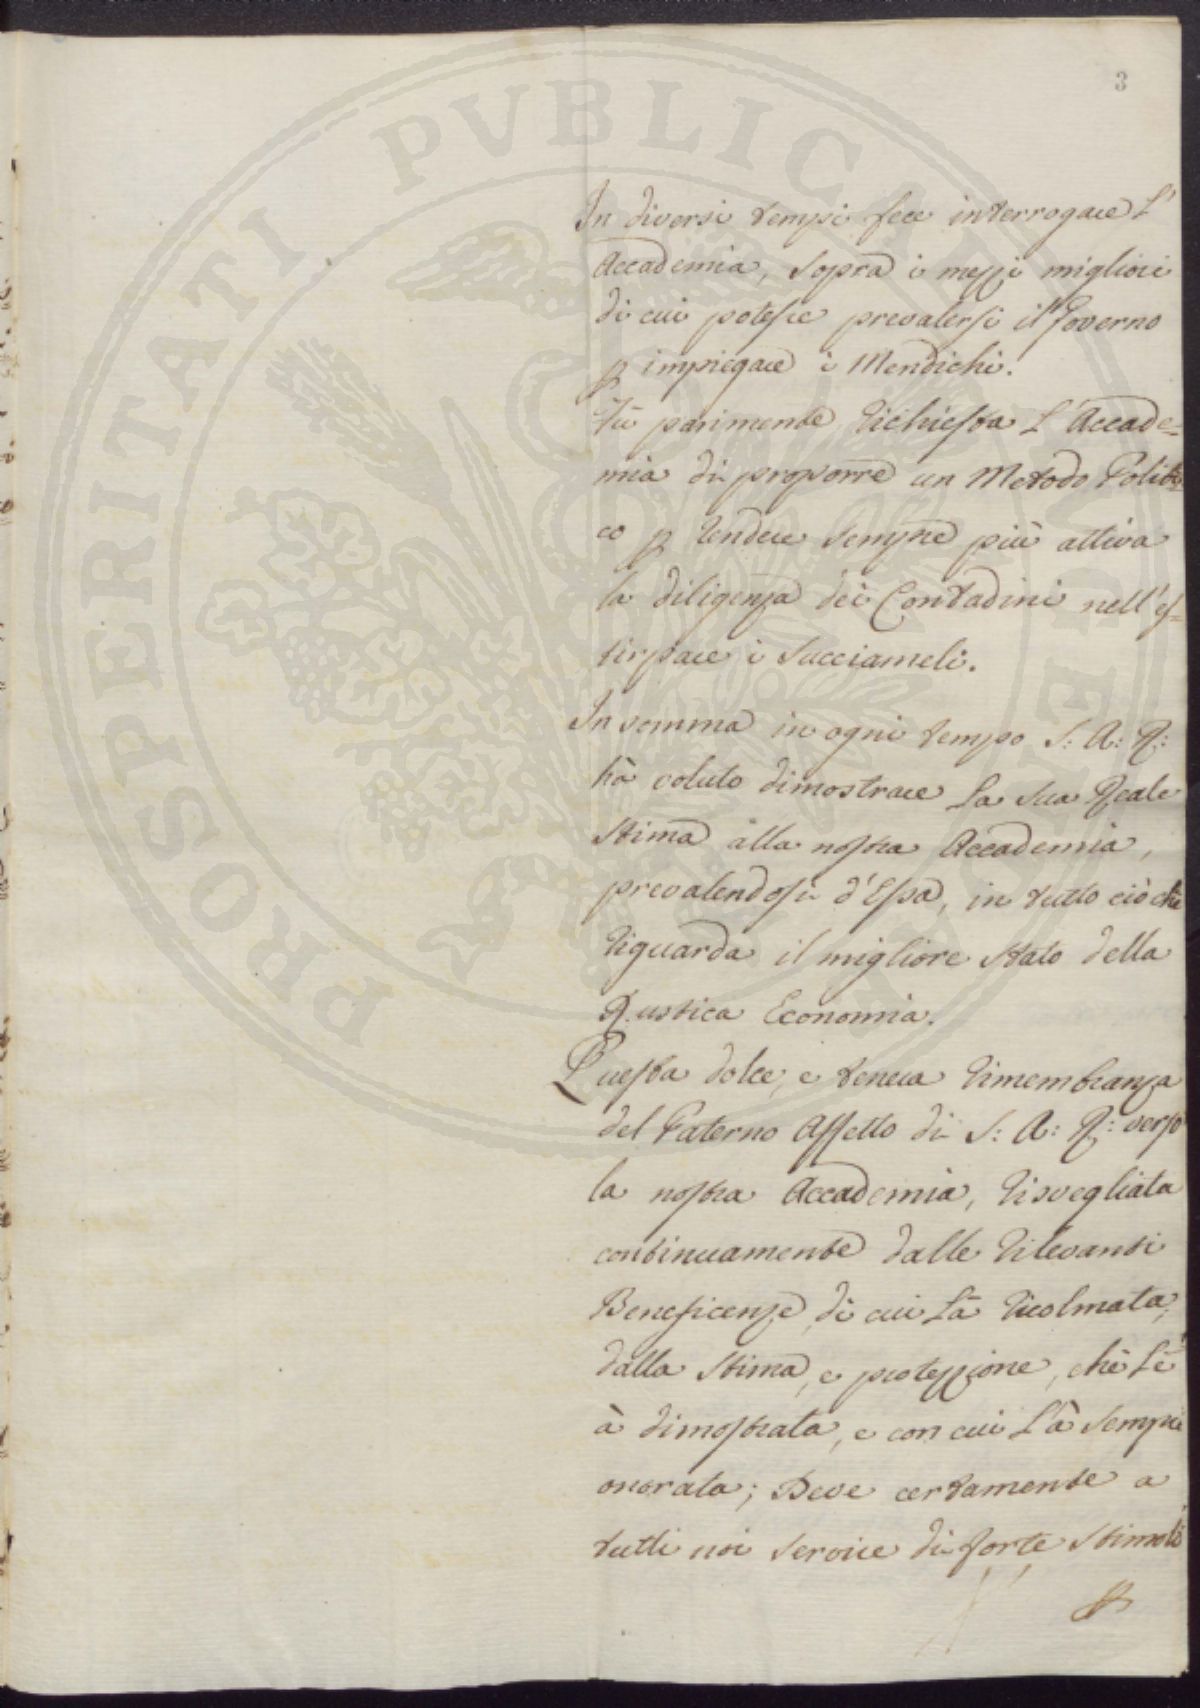 PROSPERITATI PVBLICAE AVGENDAE
3
In diversi tempi fece interrogare L'
Accademia, sopra i mezzi migliori
di cui potesse prevalersi il Governo
p impiegare i Mendichi.
Fù parimente richiesta L'Accade=
mia di proporre un Metodo Politi=
co p rendere sempre più attiva
la diligenza dei Contadini nell'es=
tirpare i Succiameli.
In somma in ogni tempo S: A: R:
hà voluto dimostrare La Sua Reale
Stima alla nostra Accademia,
prevalendosi d'Essa, in tutto ciò che
riguarda il migliore Stato della
Rustica Economia.
Questa dolce, e tenera rimembranza
del Paterno Affetto di S: A: R: verso
la nostra Accademia, risvegliata
continuamente dalle rilevanti
Beneficenze, di cui Là ricolmata;
dalla Stima, e protezzione, che Lè
à dimostrata, e con cui L'à sempre
onorata; Deve certamente a
tutti noi servire di forte Stimolo
p